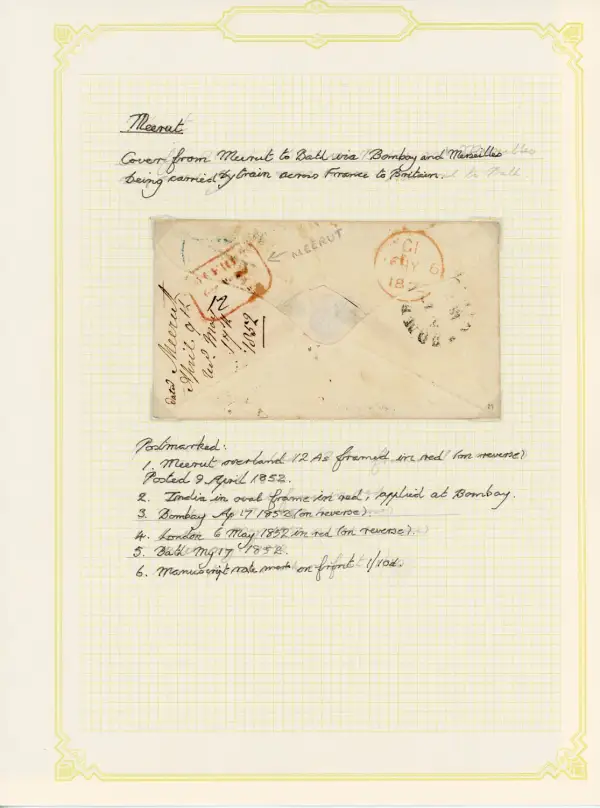 Meerut
Cover from Meerut to Bath via Bombay and Marseilles
being carried by train across France to Britain.
MEERUT
12
dated Meerut
April 9th
Recd May
17th
1852
G1
MY 6
18
Postmarked:
1. Meerut overland 12 As framed in red (on reverse)
Posted 9 April 1852.
2. India in oval frame in red, applied at Bombay.
3. Bombay Ap 17 1852 (on reverse).
4. London 6 May 1852 in red (on reverse).
5. Bath My 17 1852.
6. Manuscript rate mark on front 1/10d.